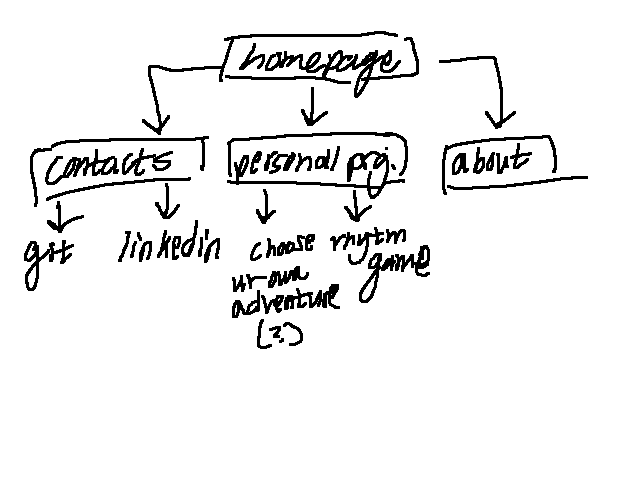 homepage
contacts
personal prj.
about
git
linkedin
choose
ur own
adventure
(?)
rhytm
game